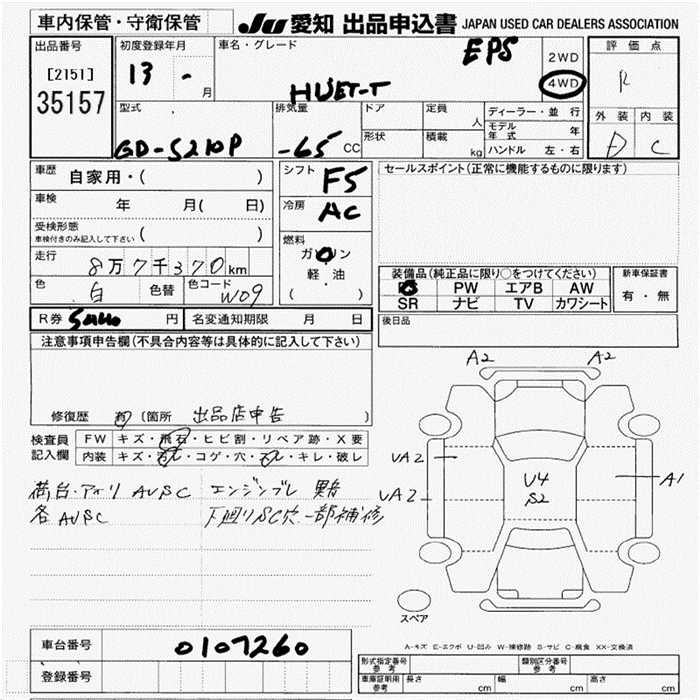 車内保管・守衛保管
JU 愛知 出品申込書 JAPAN USED CAR DEALERS ASSOCIATION
出品番号
[2151]
35157
初度登録年月
13 - 月
車名・グレード
EPS
HIJET-T
2WD
4WD
評価点
R
外装 内装
D C
型式
GD-S210P
排気量
-65 CC
ドア
形状
定員 人
積載 kg
ディーラー・並行
モデル年式 年
ハンドル 左・右
車歴
自家用・( )
車検 年 月( 日)
受検形態
車検付きのみ記入して下さい ( )
走行
8万7千370km
色 白 色替 色コード W09
シフト F5
冷房 AC
燃料
ガソリン
軽・油
( )
セールスポイント(正常に機能するものに限ります)
装備品(純正品に限り○をつけてください)
PW エアB AW
SR ナビ TV カワシート
新車保証書
有・無
後日品
R券 円 名変通知期限 月 日
注意事項申告欄(不具合内容等は具体的に記入して下さい)
修復歴 有 (箇所 出品店申告
検査員記入欄
FW キズ・飛石・ヒビ割・リペア跡・X要
内装 キズ・汚レ・コゲ・穴・スレ・キレ・破レ
荷台・アオリ AUSC エンジンブレ 異音
各AUSC 下廻りSC穴一部補修
A2 A2
UA2
UA2
U4
S2
A1
スペア
A-キズ E-エクボ U-凹み W-補修跡 S-サビ C-腐食 XX-交換済
車台番号 0107260
登録番号
型式指定番号 参考
類別区分番号 参考
車庫証明用 参考 長さ cm 幅 cm 高さ cm